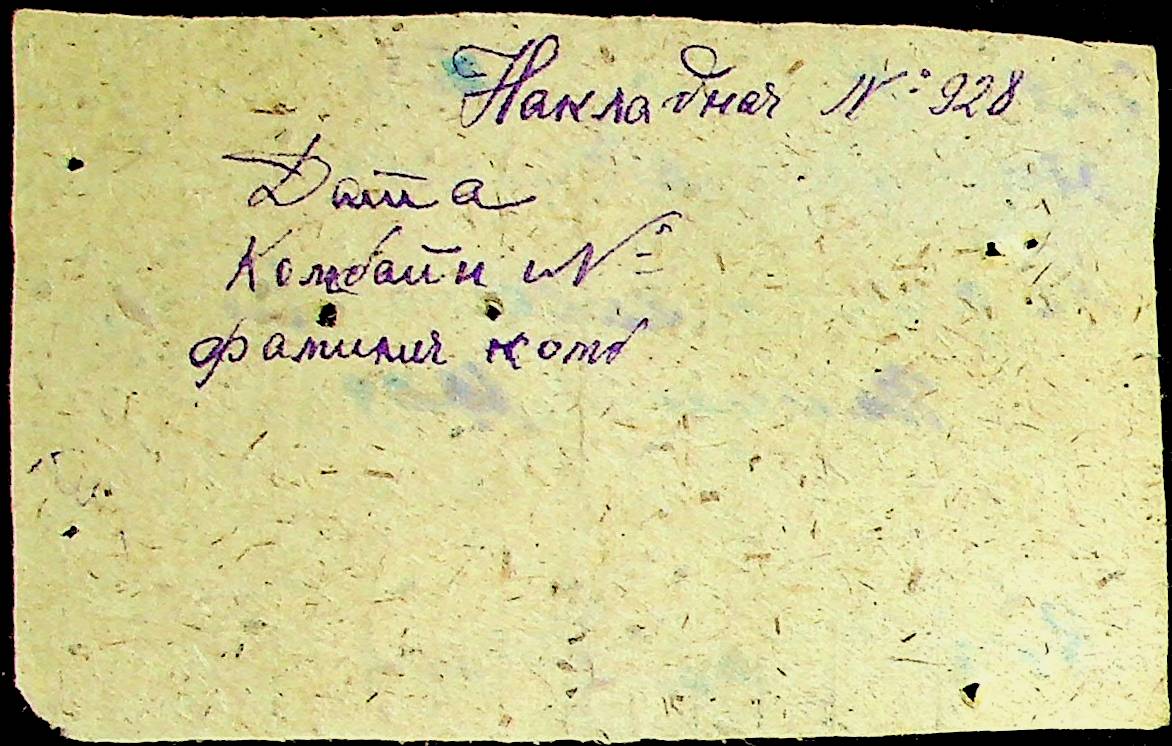 Накладная № 928
Дата
Комбайн №
фамилия комб